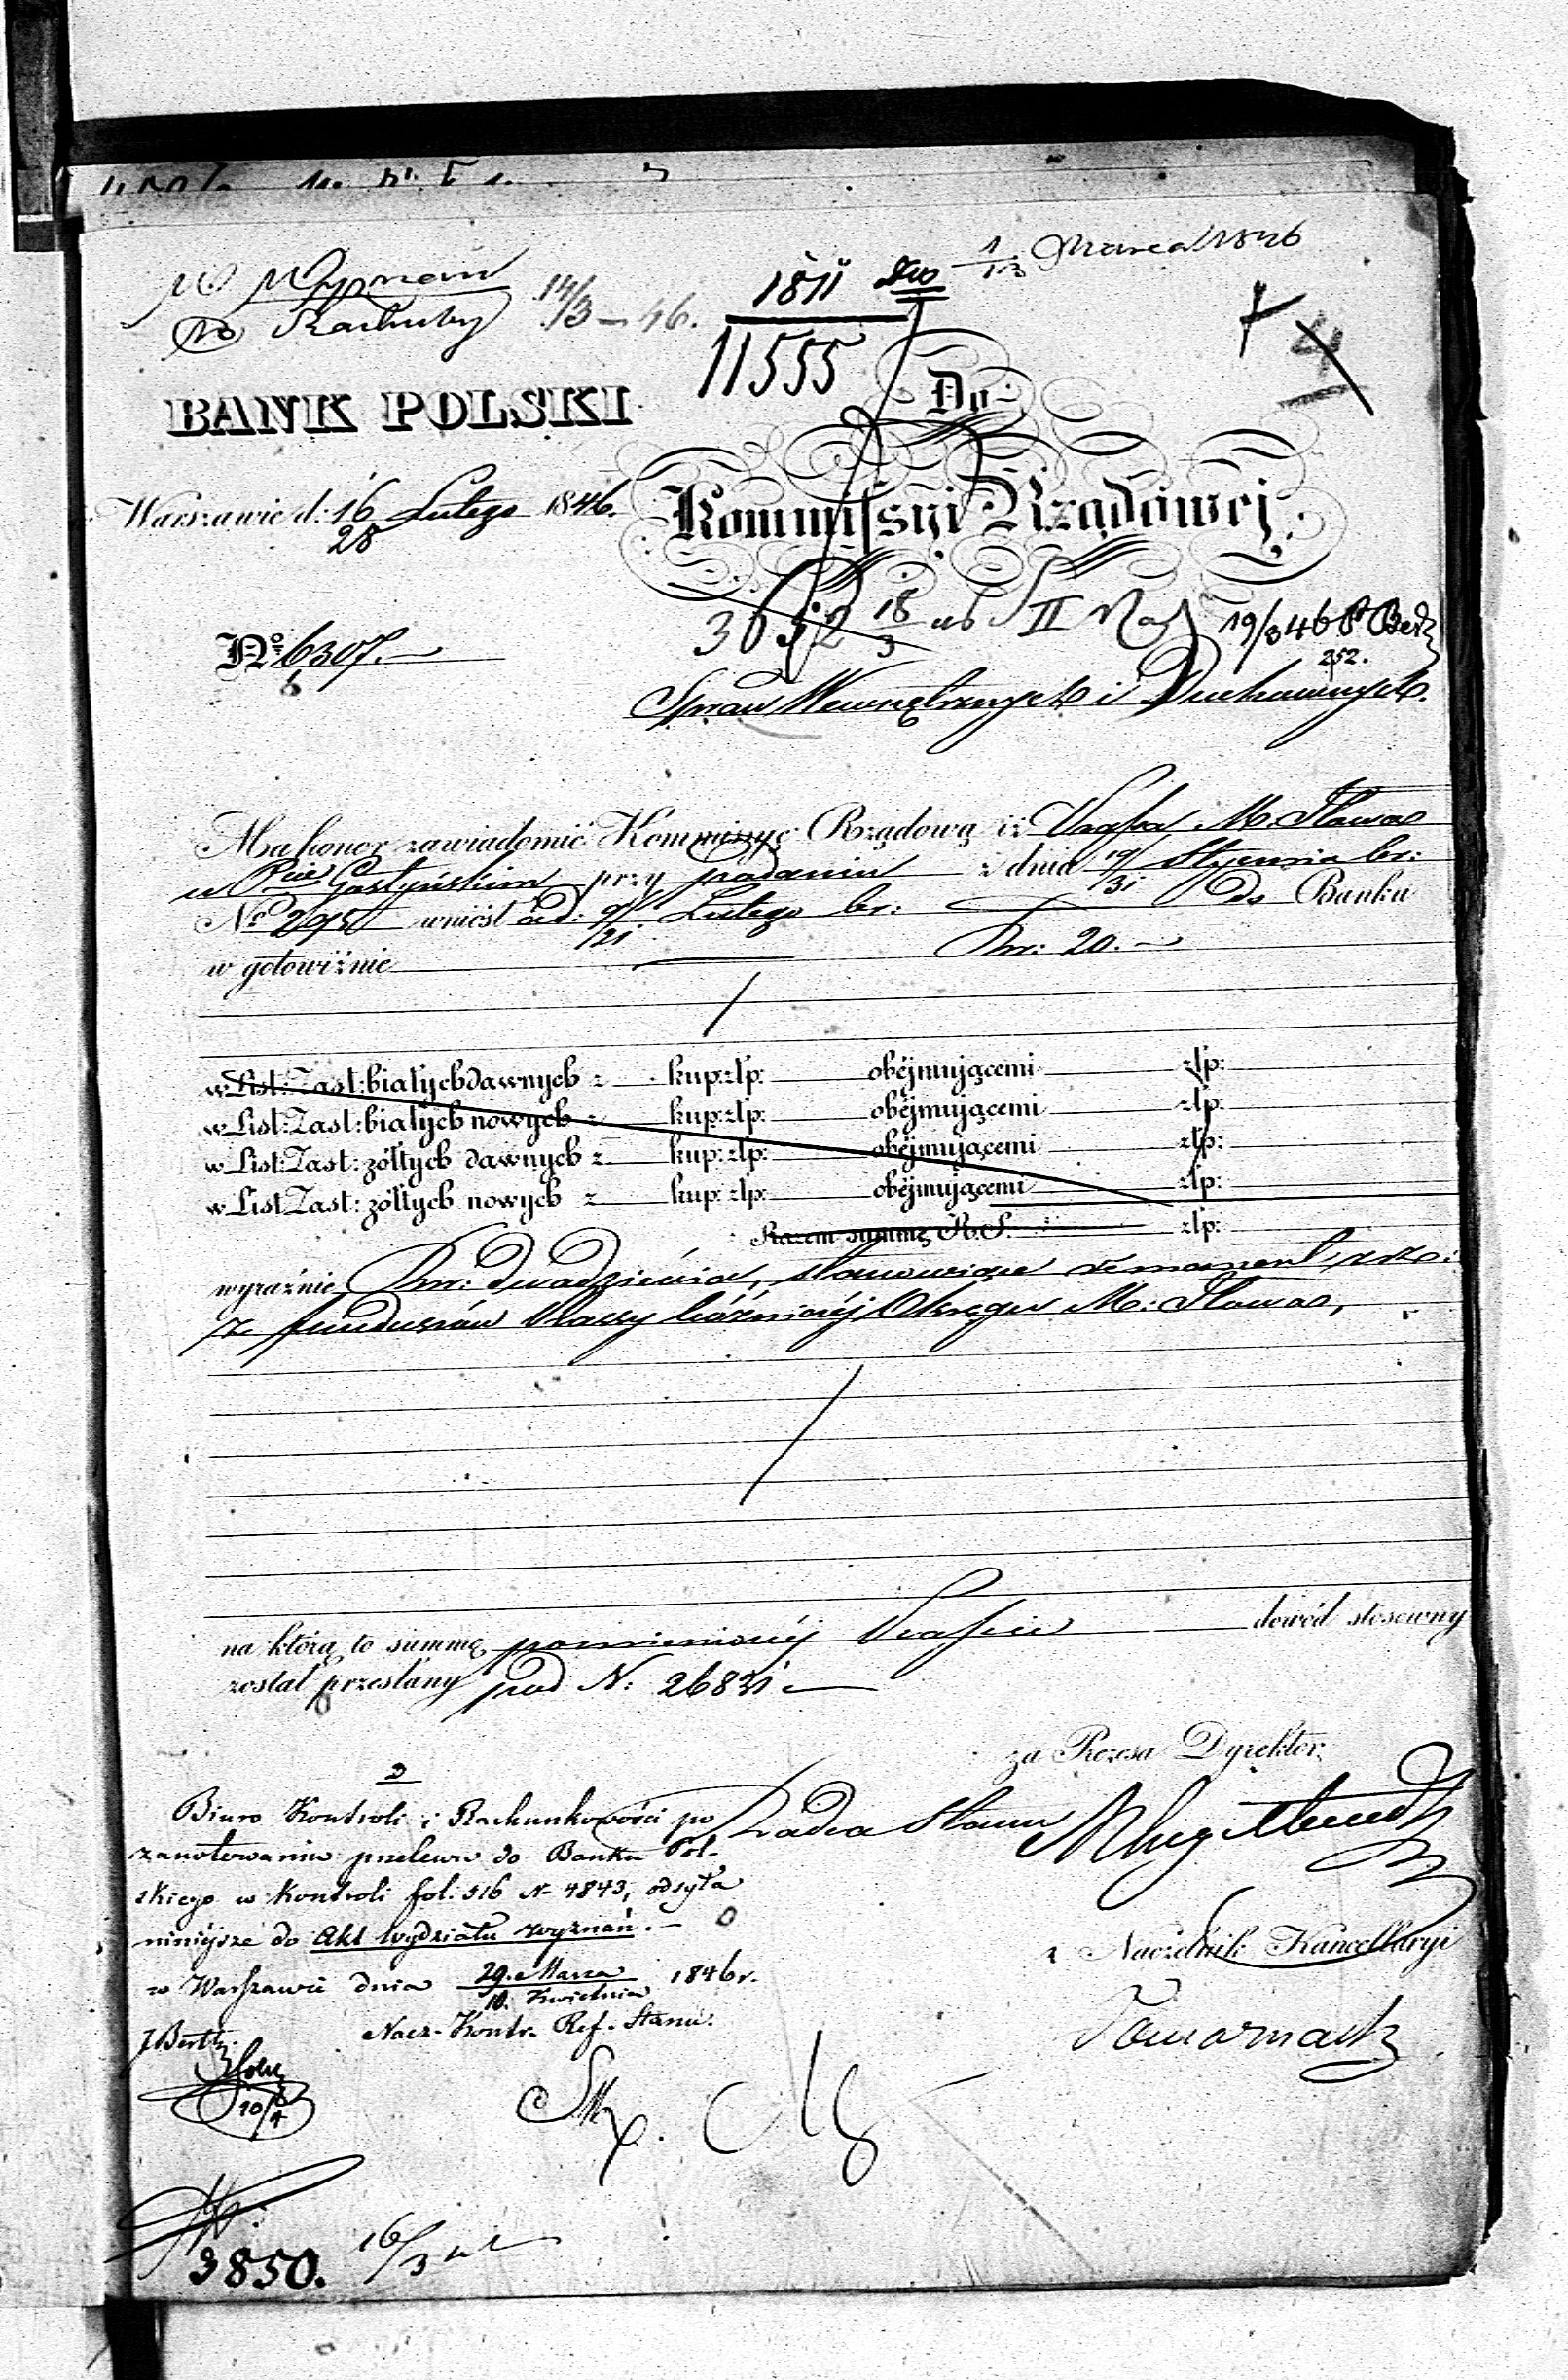 1/13 Marca 1846
W. Wyznań
Do Rachuby 14/3 – 46.
1811
11555
4
BANK POLSKI
Do
Warszawie d: 16/28 Lutego 1846.
Kommissyi Rządowej
18/3 II 19/3 46
252.
No 6307.
Spraw Wewnętrznych i Duchownych.
Ma honor zawiadomić Kommissyę Rządową iż Kassa M. Iława
w Pcie Gostyńskim przy podaniu z dnia 19/31 Stycznia br:
No wniósł ad: 9/21 Lutego br: do Banku
w gotowiźnie Rsr: 20.
w List: Zast: białych dawnych z kup: złp: obejmującemi złp:
w List: Zast: białych nowych z kup: złp: obejmującemi złp:
w List: Zast: żółtych dawnych z kup: złp: obejmującemi złp:
w List Zast: żółtych nowych z kup: złp: obejmującemi złp:
Razem summę R.S. złp:
wyraźnie Rsr: dwadzieścia, stanowiące remanent
z funduszów Kassy bóżniczéj Okręgu M: Iława,
na którą to summę pomienionéj Kassie dowód stosowny
został przesłany pod N: 26831
za Prezesa Dyrektor
Radca Stanu
Biuro Kontroli i Rachunkowości po
zanotowaniu przelewu do Banku Pol-
skiego w Kontroli fol: 516 N 4843, odsyła
niniejsze do Akt Wydziału Wyznań.
w Warszawie dnia 29. Marca/10. Kwietnia 1846 r.
Nacz. Kontr. Ref. Stanu.
Naczelnik Kancellaryi
10/4
3850. 16/3